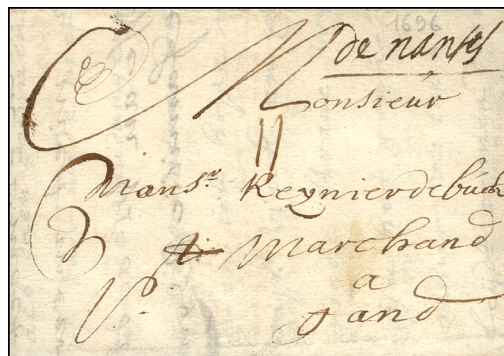 1696
de nantes
Monsieur
11
Monsr. Reynier de
Marchand
a
gand